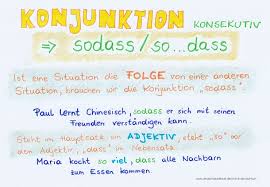 KONJUNKTION KONSEKUTIV
⇒ sodass / so...dass
Ist eine Situation die FOLGE von einer anderen
Situation, brauchen wir die Konjunktion „sodass".
Paul lernt Chinesisch, sodass er sich mit seinen
Freunden verständigen kann.
Steht im Hauptsatz ein ADJEKTIV, steht „so" vor
dem Adjektiv, „dass" im Nebensatz.
Maria kocht so viel, dass alle Nachbarn
zum Essen kommen.